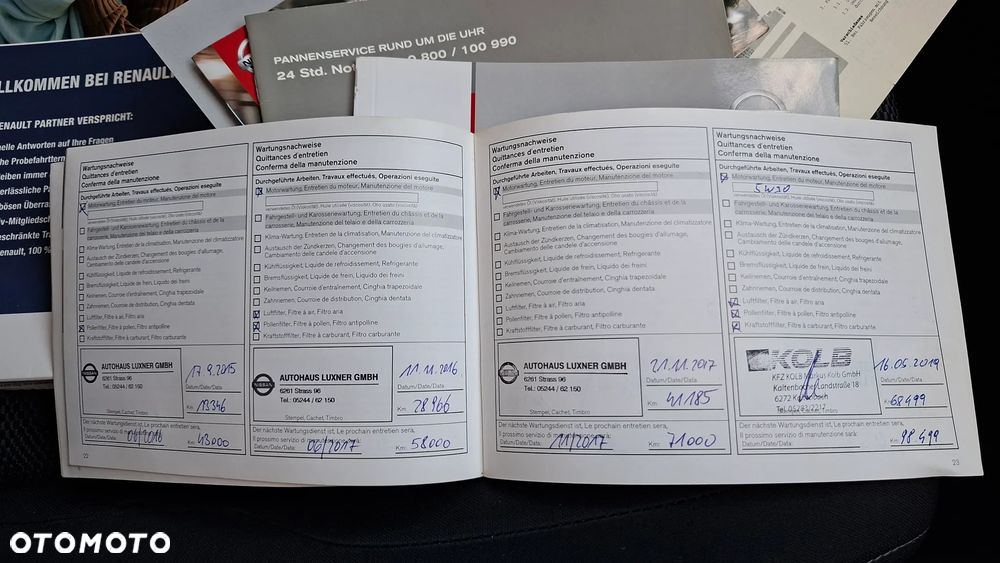 LLKOMMEN BEI RENAULT
ENAULT PARTNER VERSPRICHT:
elle Antworten auf Ihre Fragen
he Probefahrten
leiben immer
erlässliche Pa
bösen Überra
v-Mitgliedsch
schränkte Tra
enault, 100 %
PANNENSERVICE RUND UM DIE UHR
24 Std. Not 0 800 / 100 990
Wartungsnachweise
Quittances d'entretien
Conferma della manutenzione
Durchgeführte Arbeiten, Travaux effectués, Operazioni eseguite
Motorwartung, Entretien du moteur, Manutenzione del motore
Fahrgestell- und Karosseriewartung, Entretien du châssis et de la
carrosserie, Manutenzione del telaio e della carrozzeria
Klima-Wartung, Entretien de la climatisation, Manutenzione del climatizzatore
Austausch der Zündkerzen, Changement des bougies d'allumage,
Cambiamento delle candele d'accensione
Kühlflüssigkeit, Liquide de refroidissement, Refrigerante
Bremsflüssigkeit, Liquide de frein, Liquido dei freni
Keilriemen, Courroie d'entraînement, Cinghia trapezoidale
Zahnriemen, Courroie de distribution, Cinghia dentata
Luftfilter, Filtre à air, Filtro aria
Pollenfilter, Filtre à pollen, Filtro antipolline
Kraftstofffilter, Filtre à carburant, Filtro carburante
NISSAN
AUTOHAUS LUXNER GMBH
6261 Strass 96
Tel.: 05244 / 62 150
Stempel, Cachet, Timbro
17.9.2015
Datum/Date/Data:
Km: 13346
Der nächste Wartungsdienst ist, Le prochain entretien sera,
Il prossimo servizio di manutenzione sarà:
Datum/Date/Data: 06/2016 Km: 43000
22
Wartungsnachweise
Quittances d'entretien
Conferma della manutenzione
Durchgeführte Arbeiten, Travaux effectués, Operazioni eseguite
Motorwartung, Entretien du moteur, Manutenzione del motore
verwendetes Öl (Viskosität), Huile utilisée (viscosité), Olio usato (viscosità)
Fahrgestell- und Karosseriewartung, Entretien du châssis et de la
carrosserie, Manutenzione del telaio e della carrozzeria
Klima-Wartung, Entretien de la climatisation, Manutenzione del climatizzatore
Austausch der Zündkerzen, Changement des bougies d'allumage,
Cambiamento delle candele d'accensione
Kühlflüssigkeit, Liquide de refroidissement, Refrigerante
Bremsflüssigkeit, Liquide de frein, Liquido dei freni
Keilriemen, Courroie d'entraînement, Cinghia trapezoidale
Zahnriemen, Courroie de distribution, Cinghia dentata
Luftfilter, Filtre à air, Filtro aria
Pollenfilter, Filtre à pollen, Filtro antipolline
Kraftstofffilter, Filtre à carburant, Filtro carburante
NISSAN
AUTOHAUS LUXNER GMBH
6261 Strass 96
Tel.: 05244 / 62 150
Stempel, Cachet, Timbro
11.11.2016
Datum/Date/Data:
Km: 28966
Der nächste Wartungsdienst ist, Le prochain entretien sera,
Il prossimo servizio di manutenzione sarà:
Datum/Date/Data: 06/2017 Km: 58000
Wartungsnachweise
Quittances d'entretien
Conferma della manutenzione
Durchgeführte Arbeiten, Travaux effectués, Operazioni eseguite
Motorwartung, Entretien du moteur, Manutenzione del motore
verwendetes Öl (Viskosität), Huile utilisée (viscosité), Olio usato (viscosità)
Fahrgestell- und Karosseriewartung, Entretien du châssis et de la
carrosserie, Manutenzione del telaio e della carrozzeria
Klima-Wartung, Entretien de la climatisation, Manutenzione del climatizzatore
Austausch der Zündkerzen, Changement des bougies d'allumage,
Cambiamento delle candele d'accensione
Kühlflüssigkeit, Liquide de refroidissement, Refrigerante
Bremsflüssigkeit, Liquide de frein, Liquido dei freni
Keilriemen, Courroie d'entraînement, Cinghia trapezoidale
Zahnriemen, Courroie de distribution, Cinghia dentata
Luftfilter, Filtre à air, Filtro aria
Pollenfilter, Filtre à pollen, Filtro antipolline
Kraftstofffilter, Filtre à carburant, Filtro carburante
NISSAN
AUTOHAUS LUXNER GMBH
6261 Strass 96
Tel.: 05244 / 62 150
Stempel, Cachet, Timbro
21.11.2017
Datum/Date/Data:
Km: 41185
Der nächste Wartungsdienst ist, Le prochain entretien sera,
Il prossimo servizio di manutenzione sarà:
Datum/Date/Data: 11/2017 Km: 71000
Wartungsnachweise
Quittances d'entretien
Conferma della manutenzione
Durchgeführte Arbeiten, Travaux effectués, Operazioni eseguite
Motorwartung, Entretien du moteur, Manutenzione del motore
5W30
verwendetes Öl (Viskosität), Huile utilisée (viscosité), Olio usato (viscosità)
Fahrgestell- und Karosseriewartung, Entretien du châssis et de la
carrosserie, Manutenzione del telaio e della carrozzeria
Klima-Wartung, Entretien de la climatisation, Manutenzione del climatizzatore
Austausch der Zündkerzen, Changement des bougies d'allumage,
Cambiamento delle candele d'accensione
Kühlflüssigkeit, Liquide de refroidissement, Refrigerante
Bremsflüssigkeit, Liquide de frein, Liquido dei freni
Keilriemen, Courroie d'entraînement, Cinghia trapezoidale
Zahnriemen, Courroie de distribution, Cinghia dentata
Luftfilter, Filtre à air, Filtro aria
Pollenfilter, Filtre à pollen, Filtro antipolline
Kraftstofffilter, Filtre à carburant, Filtro carburante
KOLB
KFZ KOLB Markus Kolb GmbH
Kaltenbacher Landstraße 18
6272 Kaltenbach
Tel. 05283/2217
Stempel, Cachet, Timbro
16.05.2019
Datum/Date/Data:
Km: 68499
Der nächste Wartungsdienst ist, Le prochain entretien sera,
Il prossimo servizio di manutenzione sarà:
Datum/Date/Data: Km: 98499
23
OTOMOTO